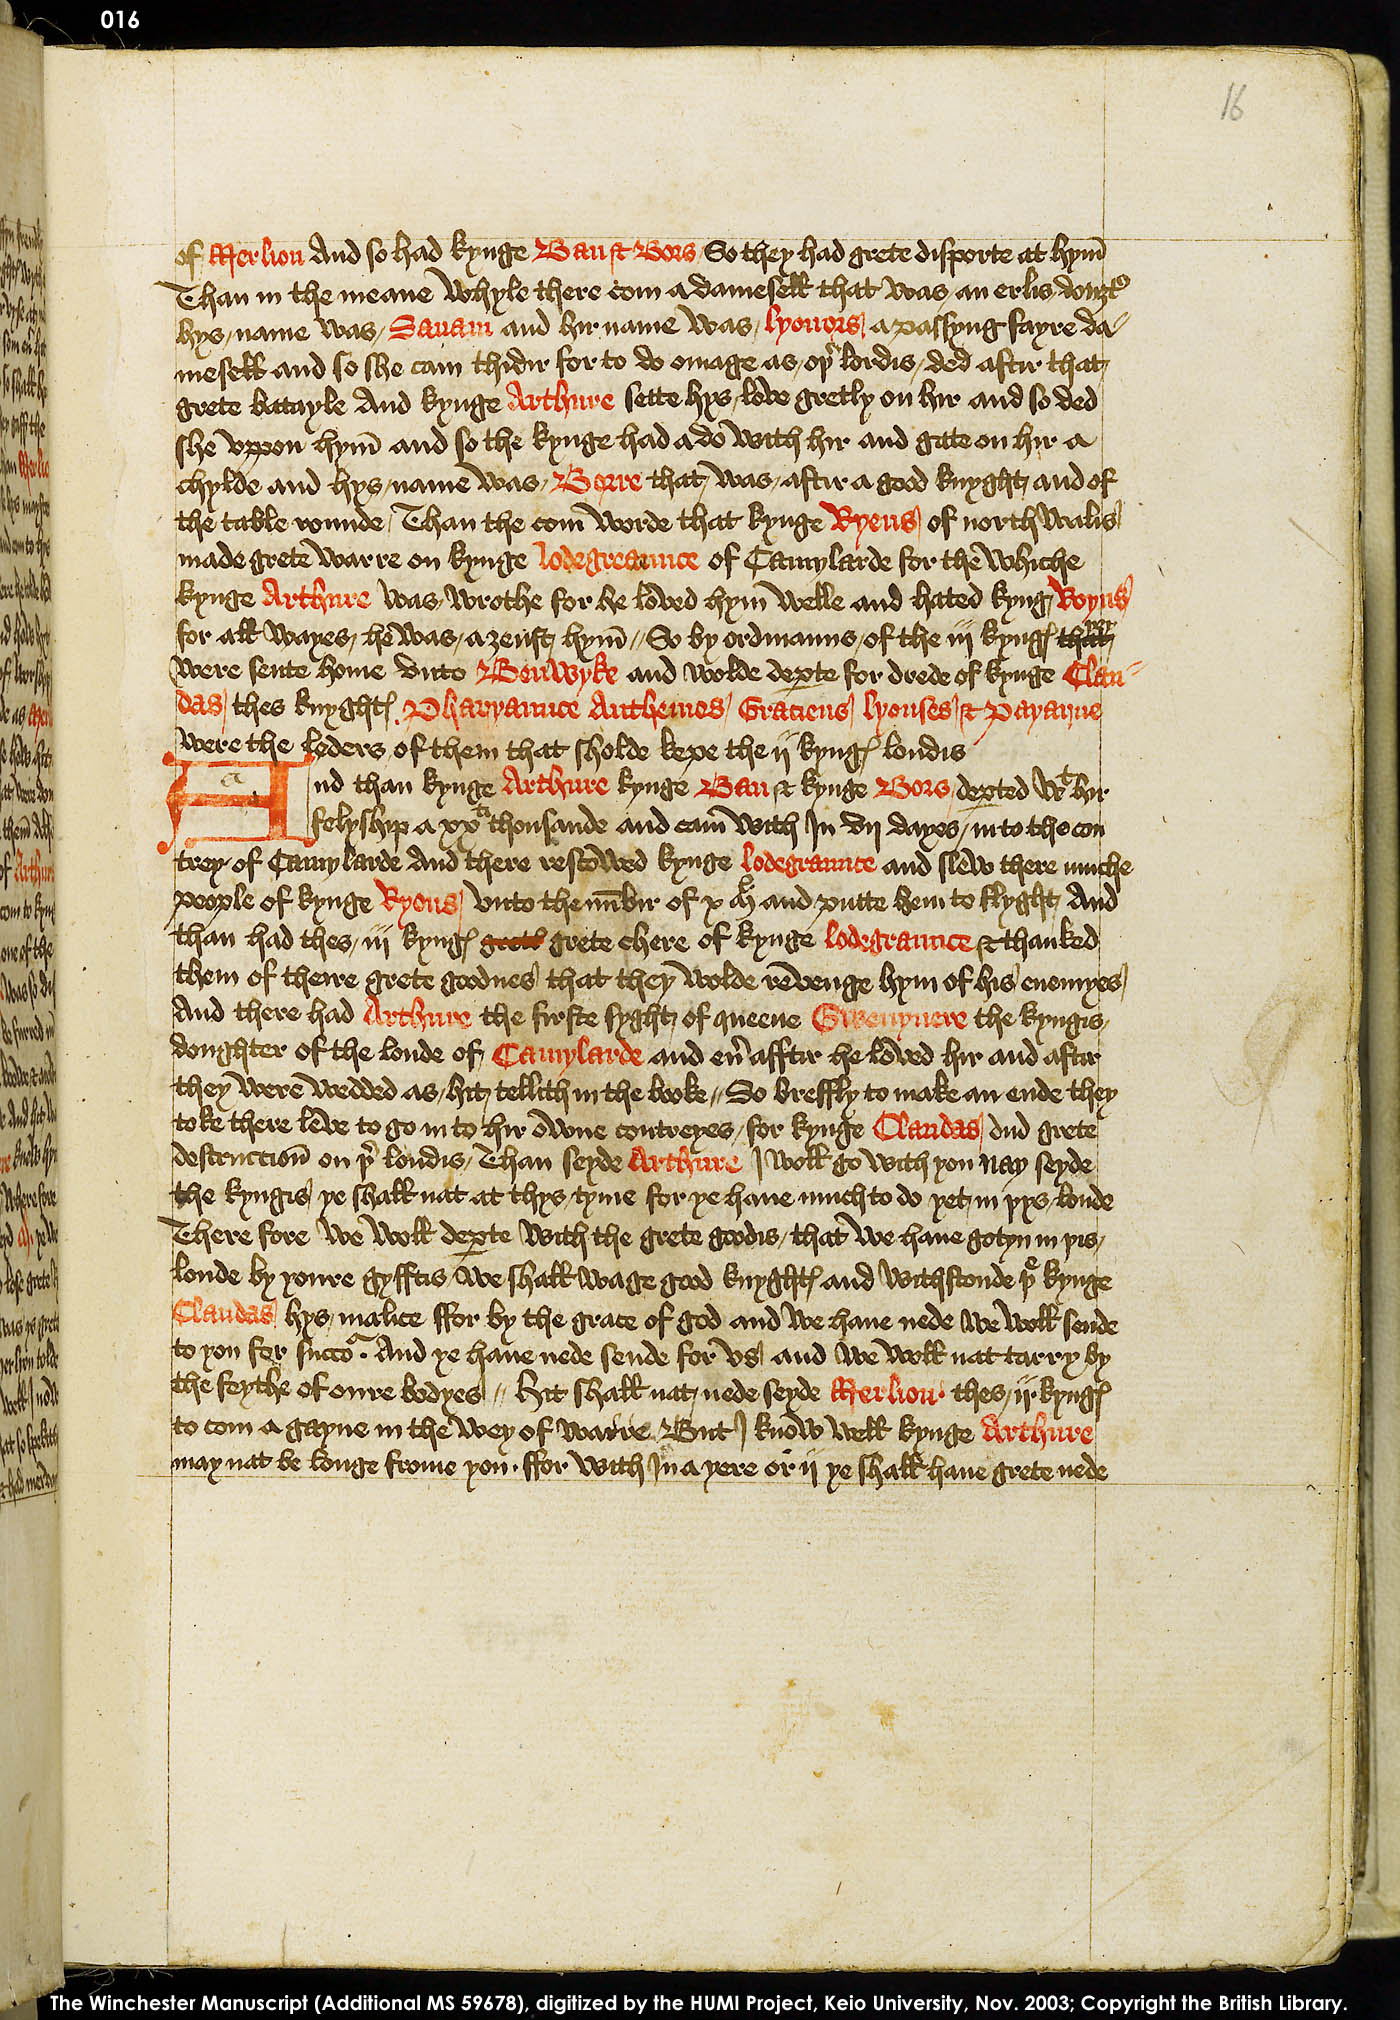 016
16
of Merlion And so had kynge Ban & Bors So they had grete disporte at hym̄
Than in the meane whyle there com a damesell that was an erlis douȝtir
hys name was Sanam and hir name was lyonors a passyng fayre da
mesell and so she cam thidir for to do omage as oþir lordis ded aftir that
grete batayle And kynge Arthure sette hys love gretly on hir and so ded
she vppon hym̄ and so the kynge had a do with hir and gate on hir a
chylde and hys name was Borre that was aftir a good knyght and of
the table rounde Than the com worde that kynge Ryens of north walis
made grete warre on kynge lodegreaunce of Camylarde for the whiche
kynge Arthure was wrothe for he loved hym̄ welle and hated kyng Royns
for all wayes he was aȝenst hym̄ // So by ordinauns of the iij kyngꝭ that
were sente home vnto Benwyke and wolde deꝑte for drede of kynge Clau
das thes knyghtꝭ. Pharyaunce Anthemes Graciens lyonses & Payarne
were the leders of them that sholde kepe the ij kyngꝭ londis
And than kynge Arthure kynge Ban & kynge Bors deꝑted wt hir
felyship a xxti thousande and cam̄ with In vij dayes in to the con
trey of Camylarde And there rescowed kynge lodegraunce and slew there muche
people of kynge Ryons vnto the nūbir of x Ml and putte hem to flyght And
than had thes iij kyngꝭ grete grete chere of kynge lodegraunce & thanked
them of theire grete goodnes that they wolde revenge hym of his enemyes
And there had Arthure the firste syght of queene Gwenyvere the kyngis
doughter of the londe of Camylarde and eū afftir he loved hir and aftir
they were wedded as hit tellith in the booke // So breffly to make an ende they
toke there leve to go in to hir owne contreyes for kynge Claudas dud grete
destruccion̄ on þr londis Than seyde Arthure I woll go with you nay seyde
the kyngis ye shall nat at thys tyme for ye haue much to do yet in þys londe
There fore we woll deꝑte with the grete goodis that we haue gotyn in þis
londe by youre gyfftis we shall wage good knyghtꝭ and withstonde þe kynge
Claudas hys malice ffor by the grace of god and we haue nede we woll sende
to you for succor. And ye haue nede sende for vs and we woll nat tarry by
the feythe of oure bodyes // Hit shall nat nede seyde Merlion. thes ij kyngꝭ
to com a gayne in the wey of warre But I know well kynge Arthure
may nat be longe frome you. ffor with In a yere or ij ye shall haue grete nede
The Winchester Manuscript (Additional MS 59678), digitized by the HUMI Project, Keio University, Nov. 2003; Copyright the British Library.